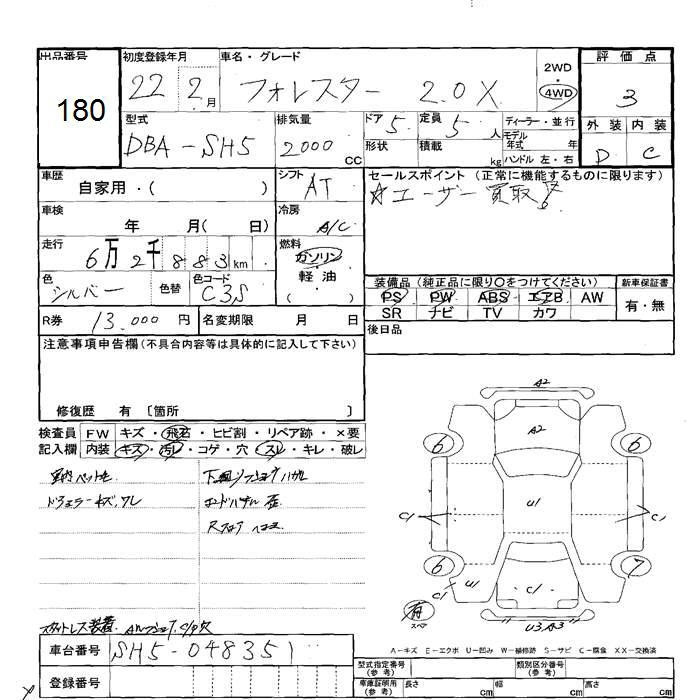 出品番号
180
初度登録年月
22 2月
車名・グレード
フォレスター 2.0X
2WD
4WD
評価点
3
外装 内装
D C
型式
DBA-SH5
排気量
2000 CC
ドア 5
定員 5人
形状
積載 kg
ディーラー・並行
モデル年式 年
ハンドル 左・右
車歴
自家用・( )
シフト AT
セールスポイント (正常に機能するものに限ります)
☆ユーザー買取
車検
年 月( 日)
冷房 A/C
走行
6万2千883km
燃料
ガソリン
・
軽油
( )
色
シルバー
色替
色コード
C3S
装備品 (純正品に限り○をつけてください)
PS PW ABS エアB AW
SR ナビ TV カワ
新車保証書
有・無
R券 13.000円
名変期限 月 日
後日品
注意事項申告欄(不具合内容等は具体的に記入して下さい)
修復歴 有 〔箇所 〕
検査員記入欄
FW キズ・飛石・ヒビ割・リペア跡・×要
内装 キズ・汚レ・コゲ・穴・スレ・キレ・破レ
A2
A2
6
6
C1
U1
C1
6
7
C1
U1
C1
有
スペア
U3 A3
A-キズ E-エクボ U-凹み W-補修跡 S-サビ C-腐食 XX-交換済
車台番号 SH5-048351
登録番号
型式指定番号(参考)
類別区分番号(参考)
車庫証明用(参考)
長さ cm
幅 cm
高さ cm